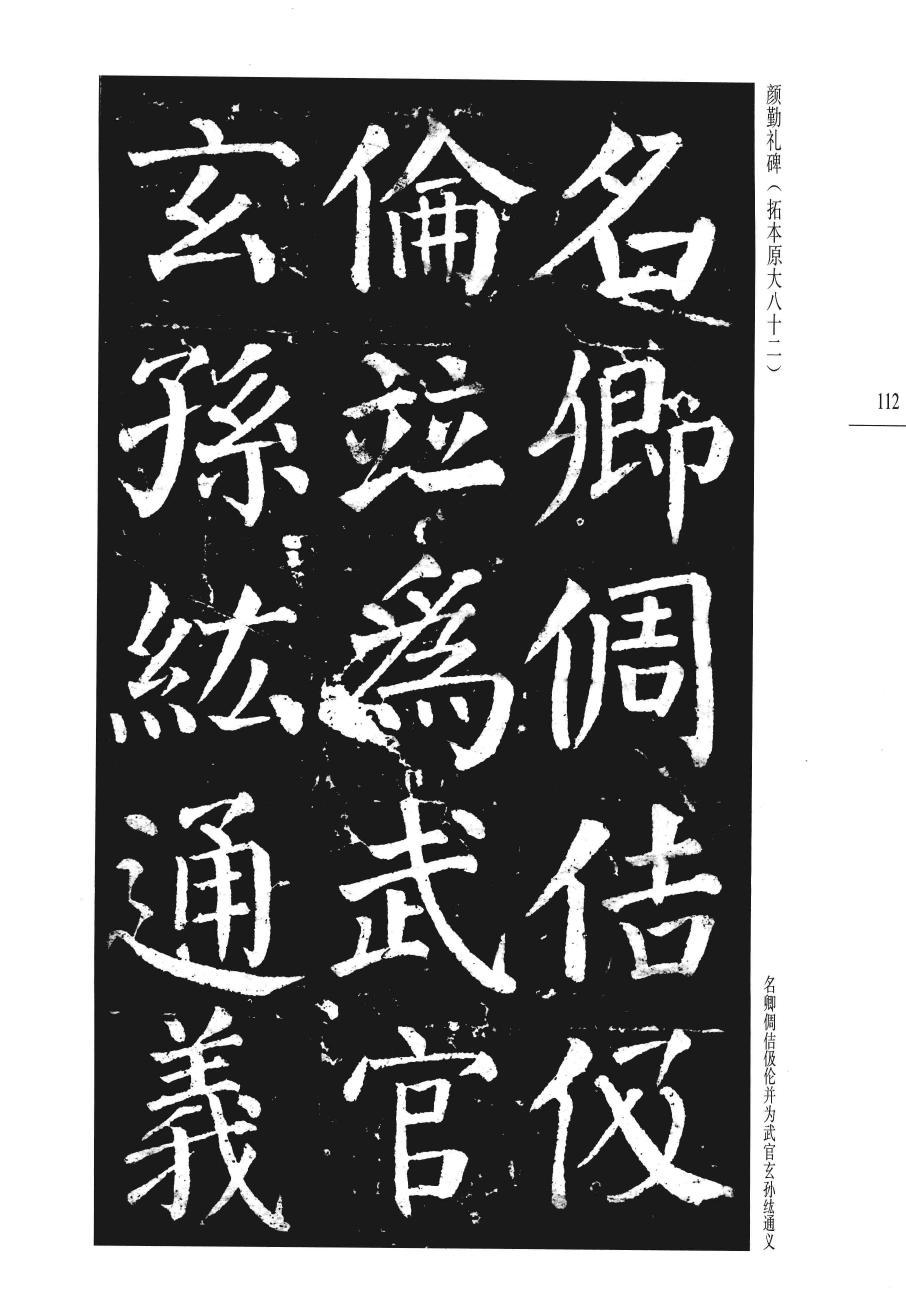 颜勤礼碑（拓本原大八十二）
112
名卿倜佶伋
倫並為武官
玄孫紘通義
名卿倜佶伋伦并为武官玄孙纮通义